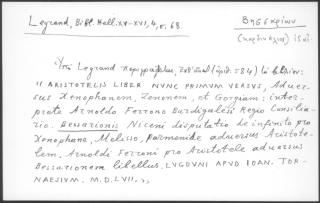 Legrand, Bibl. Hell. XV-XVI, 4, σ. 68.
Βησσαρίων
(καρδινάλιος)
Ὑπὸ Legrand περιγραφεῖσαι, (ἀριθ. 584) τὸ
"ARISTOTELIS LIBER NUNC PRIMUM VERSUS, Adver-
sus Xenophanem, Zenonem, et Gorgiam: inter-
prete Arnoldo Ferrono Burdigalensi Regio Consilia-
rio. BESSARIONIS Niceni disputatio de infinito pro
Xenophane, Melisso, Parmenide adversus Aristote-
lem. Arnoldi Ferroni pro Aristotele adversus
Bessarionem libellus. LUGDUNI APUD IOAN. TOR-
NAESIUM. M.D.LVII.,,